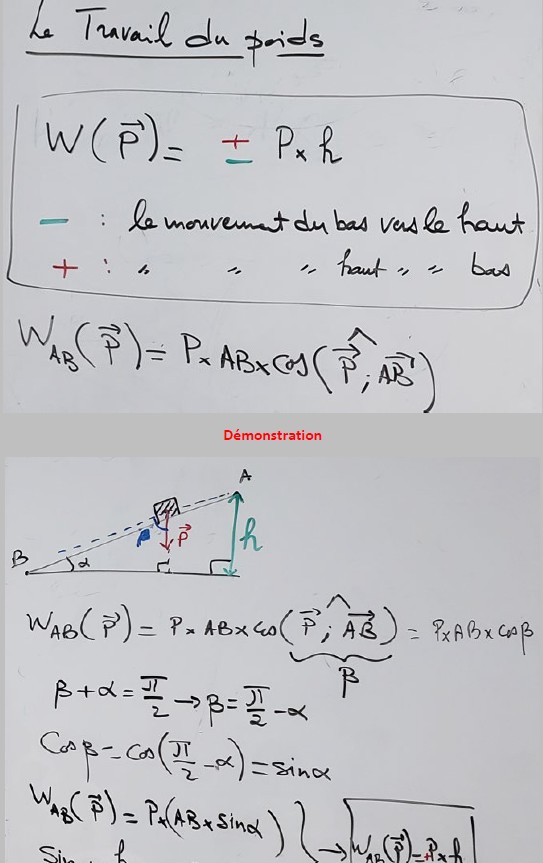 Le Travail du poids
W(P⃗) = ± P × h
− : le mouvement du bas vers le haut
+ : " " " haut " " bas
W_AB(P⃗) = P × AB × cos(P⃗ ; AB⃗)
Démonstration
A
B α β P⃗ h
W_AB(P⃗) = P × AB × cos(P⃗ ; AB⃗) = P × AB × cos β
β
β + α = π/2 → β = π/2 − α
Cos β = cos(π/2 − α) = sin α
W_AB(P⃗) = P × (AB × sin α)
→ W_AB(P⃗) = + P × h
Sin h